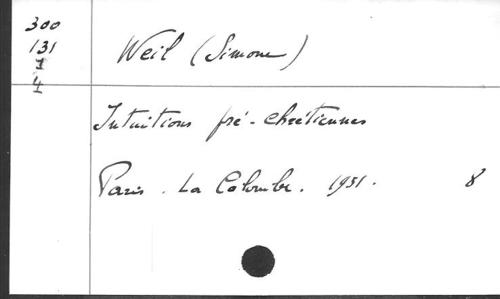 300
131
I
4
Weil (Simone)
Intuitions pré-chrétiennes
Paris. La Colombe. 1951. 8